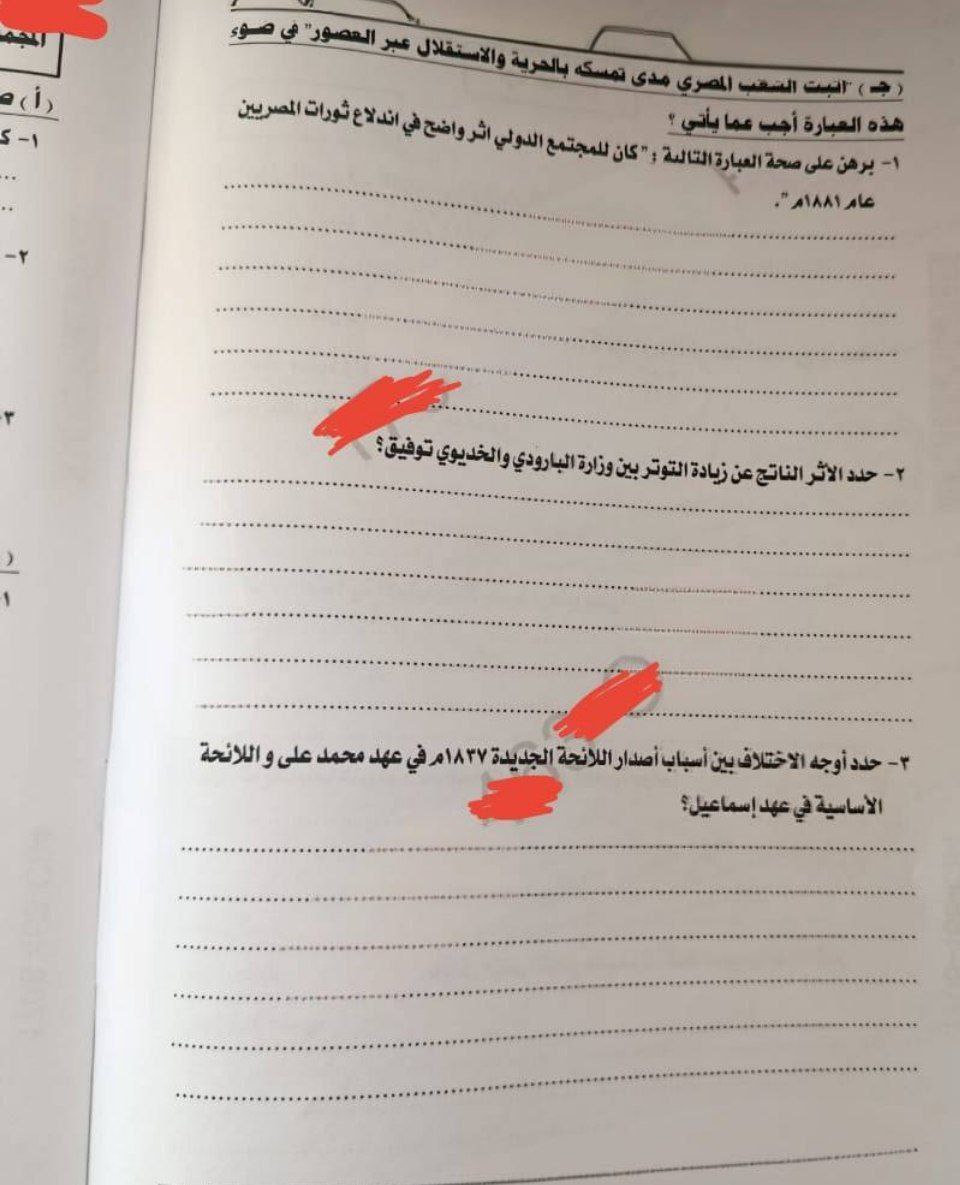 المجم
( أ ) ص
١- ك
٢-
٣
)
١
( جـ ) "أثبت الشعب المصري مدى تمسكه بالحرية والاستقلال عبر العصور" في ضوء
هذه العبارة أجب عما يأتي ؟
١- برهن على صحة العبارة التالية : "كان للمجتمع الدولي اثر واضح في اندلاع ثورات المصريين
عام ١٨٨١م".
٢- حدد الأثر الناتج عن زيادة التوتر بين وزارة البارودي والخديوي توفيق؟
٣- حدد أوجه الاختلاف بين أسباب أصدار اللائحة الجديدة ١٨٣٧م في عهد محمد على و اللائحة
الأساسية في عهد إسماعيل؟